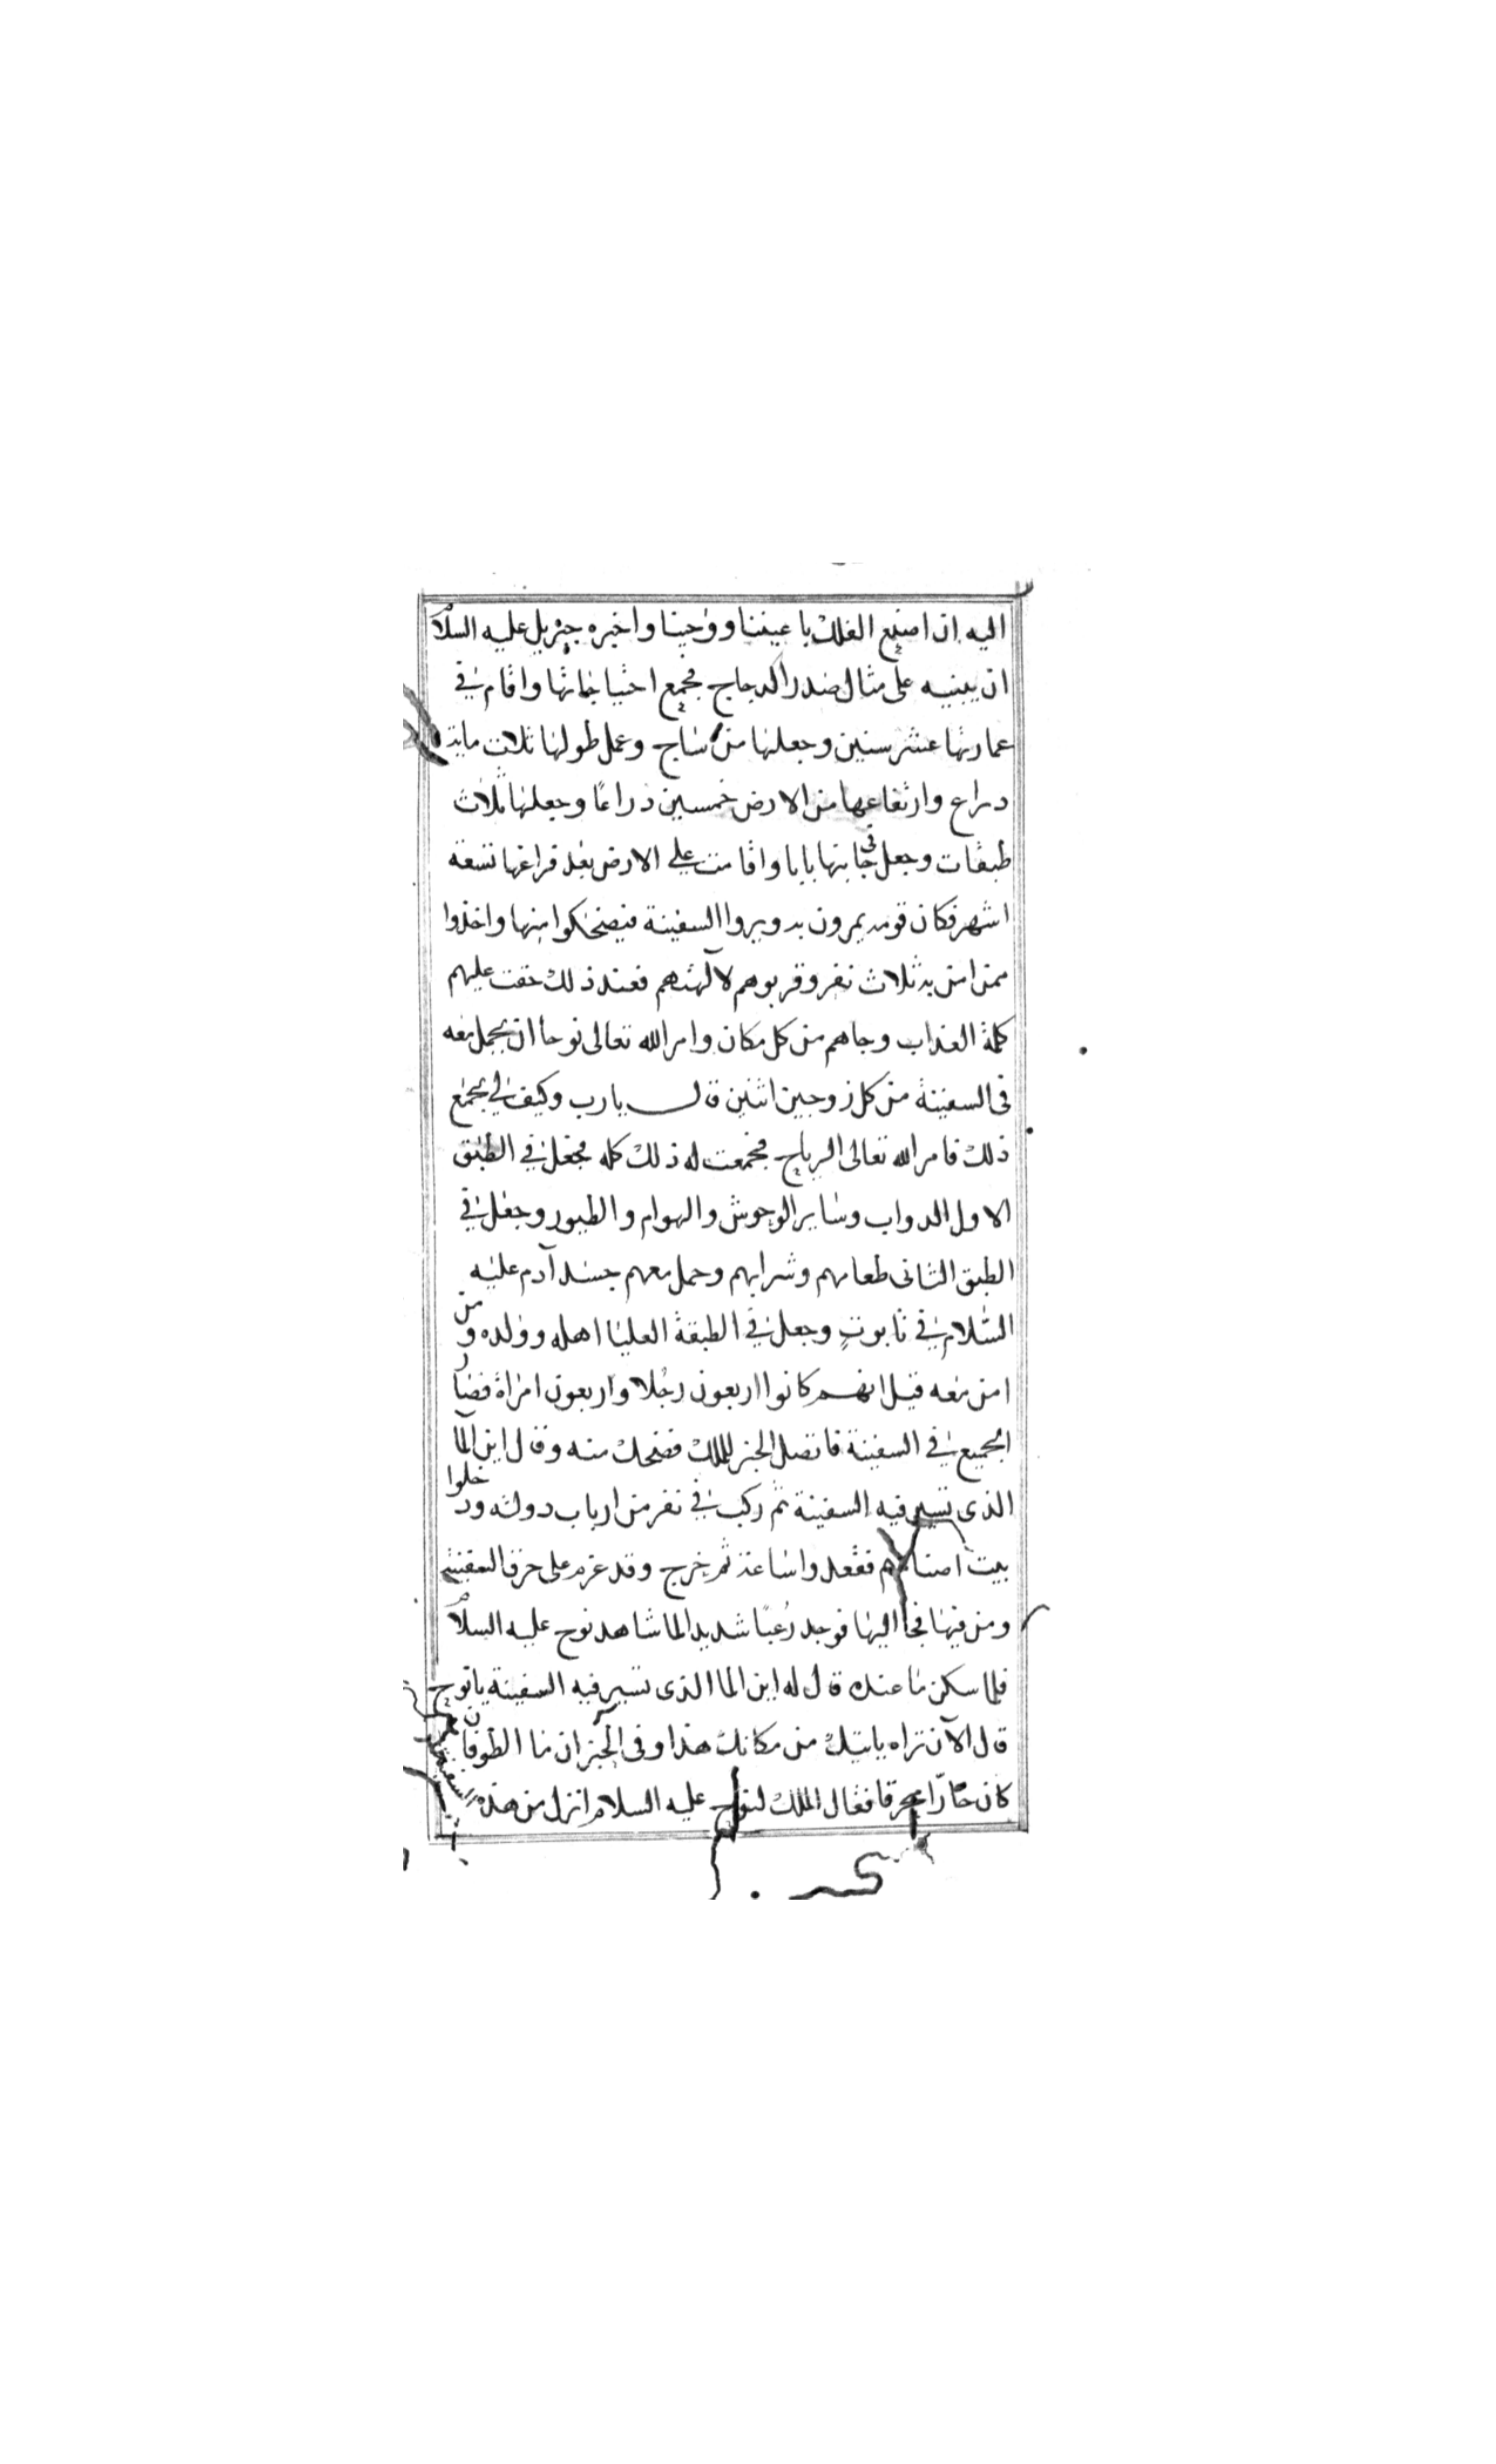 اليه ان اصنع الفلك باعيننا ووحينا واخبره جبريل عليه السلام
ان يبنيه على مثال صدر الدجاج فجمع اخشابها واقام في
عمارتها عشر سنين وجعلها من ساج وعمل طولها ثلاث ماية
دراع وارتفاعها من الارض خمسين دراعًا وجعلها ثلاث
طبقات وجعل في جانبها بابا واقامت على الارض بعد فراغها تسعة
اشهر فكان قومه يمرون به ويروا السفينة فيضحكوا منها واخذوا
ممن امن به ثلاث نفر وقربوهم لآلهتهم فعند ذلك حقت عليهم
كلمة العذاب وجاهم من كل مكان وامر الله تعالى نوحا ان يحمل معه
في السفينة من كل زوجين اثنين قال يارب وكيف لي بجمع
ذلك فامر الله تعالى الرياح فجمعت له ذلك كله فجعل في الطبق
الاول الدواب وساير الوحوش والهوام والطيور وجعل في
الطبق الثاني طعامهم وشرابهم وحمل معهم جسد آدم عليه
السلام في تابوتٍ وجعل في الطبقة العليا اهله وولده ومن
امن معه قيل انهم كانوا اربعون رجُلا واربعون امراة فصار
الجميع في السفينة فاتصل الخبر للملك فضحك منه وقال اين المآ
الذي تسير فيه السفينة ثم ركب في نفر من ارباب دولته ودخلوا
بيت اصنامهم فقعدوا ساعة ثم خرج وقد عزم على حرق السفينة
ومن فيها فجا اليها فوجد رُعبًا شديدا لما شاهد نوح عليه السلام
فلما سكن ما عنده قال له اين الما الذي تسير فيه السفينة يا نوح
قال الآن تراه ياتيك من مكانك هذا وفي الخبر ان ما الطوفان
كان حارًا محرقا فقال الملك لنوح عليه السلام انزل من هذه السفينة